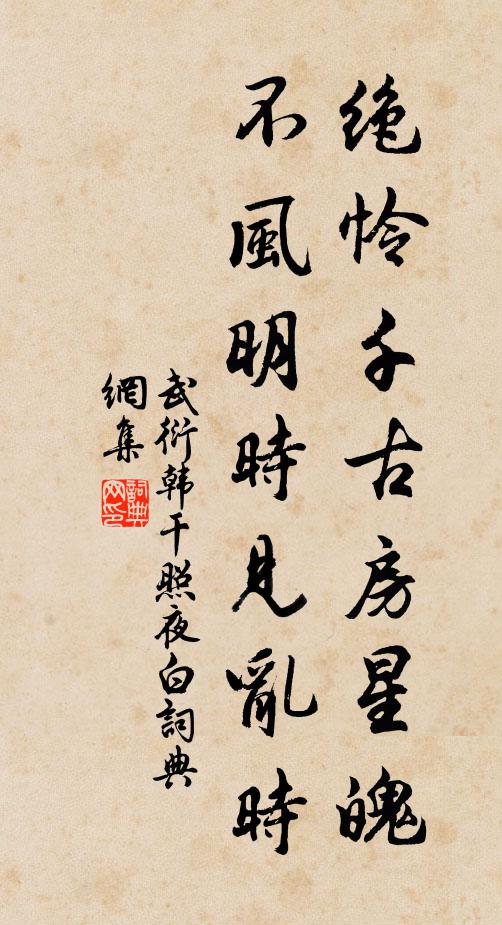 绝怜千古房星魄
不風明時見亂時
武衍韩干照夜白詞典
網集
詞典
网印